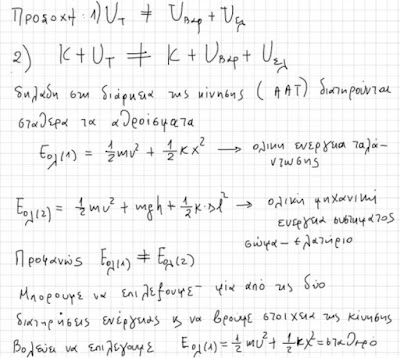 Προσοχή: 1) U_T ≠ U_βαρ + U_ελ
2) K + U_T ≠ K + U_βαρ + U_ελ
δηλαδή στη διάρκεια της κίνησης (ΑΑΤ) διατηρούνται
σταθερά τα αθροίσματα
E_ολ(1) = 1/2 mv² + 1/2 kx² → ολική ενέργεια ταλά-
ντωσης
E_ολ(2) = 1/2 mv² + mgh + 1/2 k·Δl² → ολική μηχανική
ενέργεια συστήματος
σώμα – ελατήριο
Προφανώς E_ολ(1) ≠ E_ολ(2)
Μπορούμε να επιλέξουμε μία από τις δύο
διατηρήσεις ενέργειας κ να βρουμε στοιχεια της κίνησης
Βολεύει να επιλέγουμε E_ολ(1) = 1/2 mv² + 1/2 kx² = σταθερό